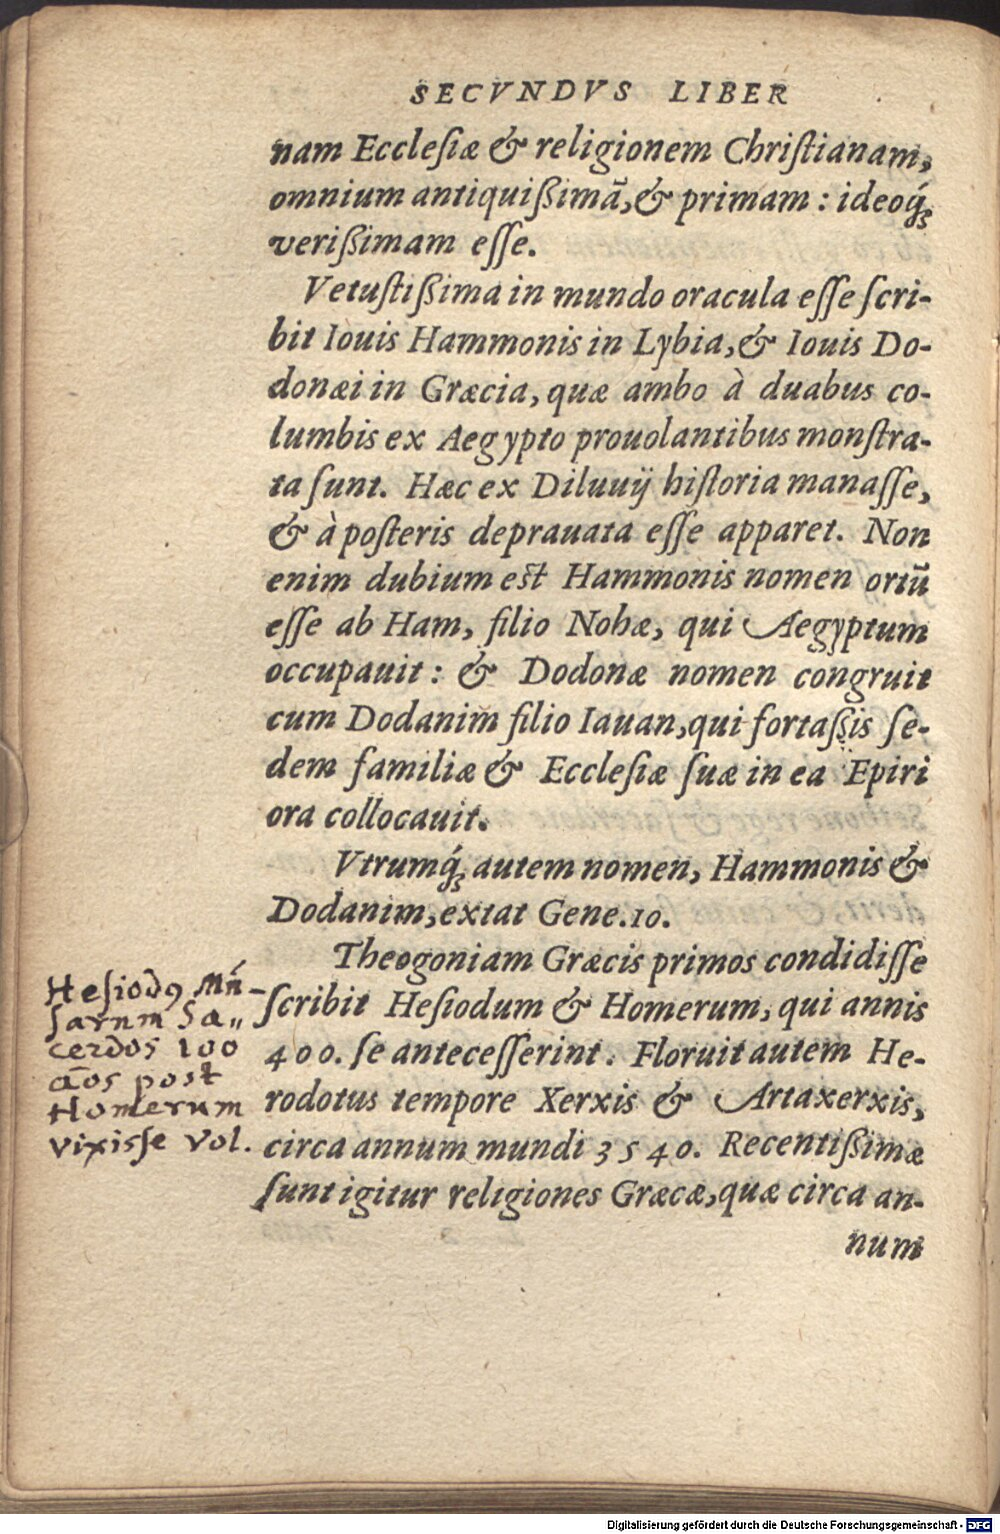 SECVNDVS LIBER
nam Ecclesiæ & religionem Christianam,
omnium antiquißimā, & primam : ideoq́;
verißimam esse.
Vetustißima in mundo oracula esse scri-
bit Iouis Hammonis in Lybia, & Iouis Do-
donæi in Græcia, quæ ambo à duabus co-
lumbis ex Aegypto prouolantibus monstra-
ta sunt. Hæc ex Diluuij historia manasse,
& à posteris deprauata esse apparet. Non
enim dubium est Hammonis nomen ortū
esse ab Ham, filio Nohæ, qui Aegyptum
occupauit : & Dodonæ nomen congruit
cum Dodanim filio Iauan, qui fortaßis se-
dem familiæ & Ecclesiæ suæ in ea Epiri
ora collocauit.
Vtrumq́; autem nomen, Hammonis &
Dodanim, extat Gene.10.
Theogoniam Græcis primos condidisse
scribit Hesiodum & Homerum, qui annis
400. se antecesserint. Floruit autem He-
rodotus tempore Xerxis & Artaxerxis,
circa annum mundi 3540. Recentißimæ
sunt igitur religiones Græcæ, quæ circa an-
num
Hesiodꝰ Mú-
sarum Sa„
cerdos 100
ãos post
Homerum
vixisse vol.
Digitalisierung gefördert durch die Deutsche Forschungsgemeinschaft - DFG